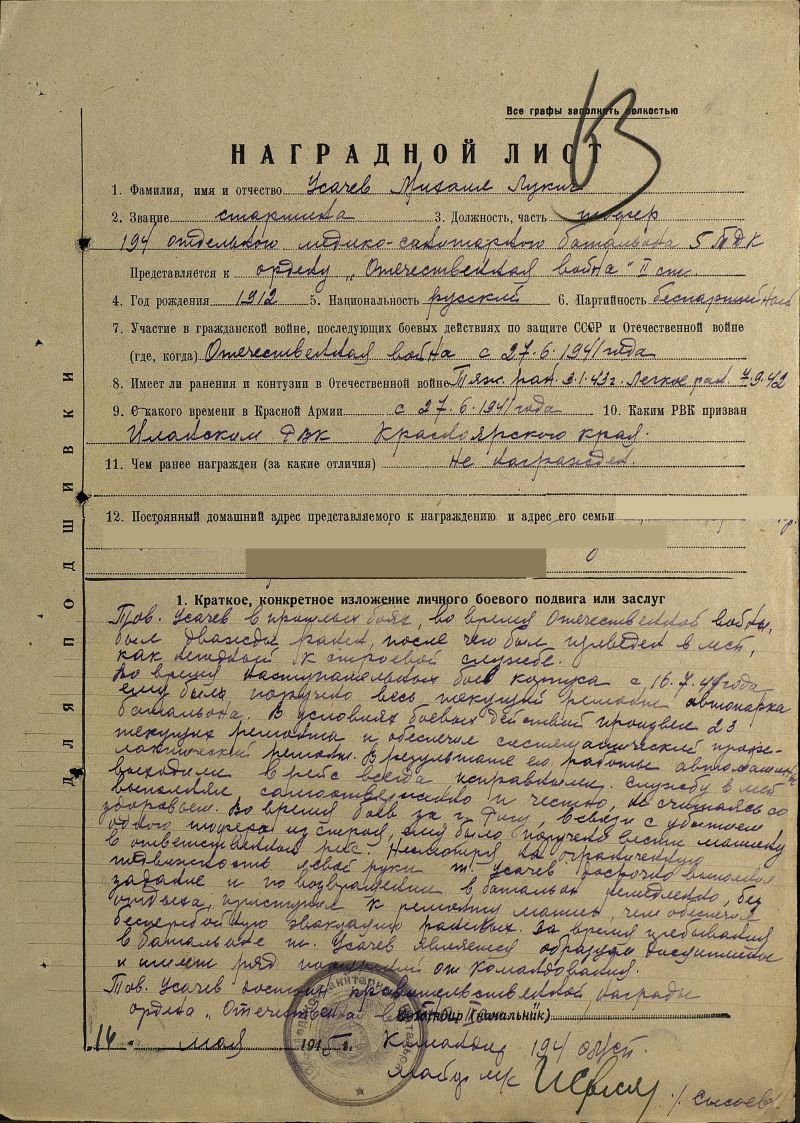 Все графы заполнять полностью
НАГРАДНОЙ ЛИСТ
1. Фамилия, имя и отчество Усачев Михаил Лукич
2. Звание старшина 3. Должность, часть шофер
194 отдельного медико-санитарного батальона 5 ТДК
Представляется к ордену „Отечественная война" II ст.
4. Год рождения 1912 5. Национальность русский 6. Партийность беспартийный
7. Участие в гражданской войне, последующих боевых действиях по защите СССР и Отечественной войне
(где, когда) Отечественная война с 27.6.1941 года
8. Имеет ли ранения и контузии в Отечественной войне Тяж. ран. 3.1.43г. Легкое ран. 7.9.42
9. С какого времени в Красной Армии с 27.6.1941 года 10. Каким РВК призван
Иланским РВК Красноярского края.
11. Чем ранее награжден (за какие отличия) не награжден.
12. Постоянный домашний адрес представляемого к награждению и адрес его семьи
ДЛЯ ПОДШИВКИ
1. Краткое, конкретное изложение личного боевого подвига или заслуг
Тов. Усачев в прошлых боях, во время Отечественной войны,
был дважды ранен, после чего был приведен в мсб,
как негодный к строевой службе.
Во время наступательных боев корпуса с 16.7.44 года
ему было поручено весь текущий ремонт автопарка
батальона. В условиях боевых действий произвел 23
текущих ремонта и обеспечил систематический профи-
лактический ремонт. В результате его работы автомашины
выходили в рейс всегда исправными. Службу в мсб
выполнял самоотверженно и честно, не считаясь со
здоровьем. Во время боев за г. Ригу, в связи с убытием
одного шофера из строя, ему было поручено вести машину
в ответственный рейс. Несмотря на ограниченную
подвижность левой руки т. Усачев досрочно выполнил
задание и по возвращении в батальон немедленно, без
отдыха, приступил к ремонту машин, чем обеспечил
бесперебойную эвакуацию раненых. За время пребывания
в батальоне т. Усачев является образцом дисциплины
и имеет ряд поощрений от командования.
Тов. Усачев достоин правительственной награды
ордена „Отечественная
Командир (начальник)
14 мая 1945 г. Командир 194 омсб
майор м/с
/Сысоев/